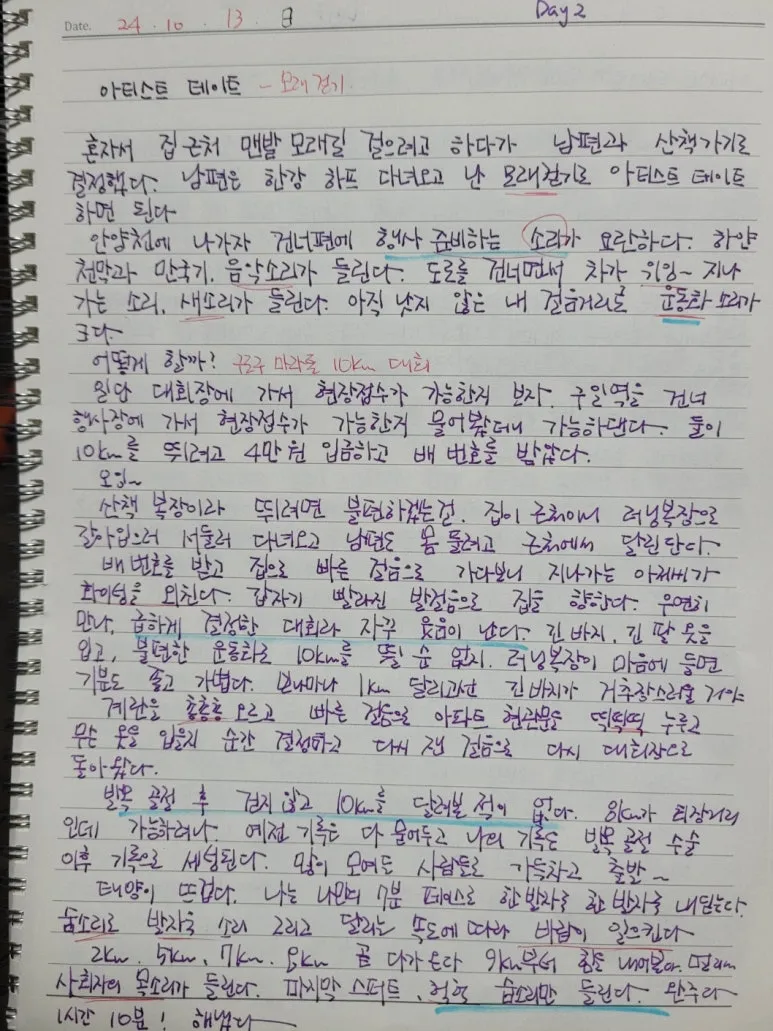 Day 2
Date. 24 · 10 · 13 · 일
아티스트 데이트 - 모래 걷기
혼자서 집 근처 맨발 모래길 걸으려고 하다가 남편과 산책가기로
결정했다. 남편은 한강 하프 다녀오고 난 모래걷기로 아티스트 데이트
하면 된다
안양천에 나가자 건너편에 행사 준비하는 소리가 요란하다. 하얀
천막과 만국기, 음악소리가 들린다. 도로를 건너면서 차가 위잉~ 지나
가는 소리, 새소리가 들린다. 아직 낫지 않은 내 걸음거리로 운동화 소리가
크다.
어떻게 할까? 구로구 마라톤 10km 대회
일단 대회장에 가서 현장접수가 가능한지 보자. 구일역을 건너
행사장에 가서 현장접수가 가능한지 물어봤더니 가능하댄다. 둘이
10km를 뛰려고 4만원 입금하고 배 번호를 받았다.
오잉~
산책 복장이라 뛰려면 불편하겠는걸. 집이 근처이니 러닝복장으로
갈아입으러 서둘러 다녀오고 남편도 몸 풀려고 근처에서 달린단다.
배 번호를 받고 집으로 빠른 걸음으로 가다보니 지나가는 아저씨가
화이팅을 외친다. 갑자기 빨라진 발걸음으로 집을 향한다. 우연히
만나, 급하게 결정한 대회라 자꾸 웃음이 난다. 긴 바지, 긴 팔 옷을
입고, 불편한 운동화로 10km를 뛸 순 없지. 러닝복장이 마음에 들면
기분도 좋고 가볍다. 보나마나 1km 달리고선 긴바지가 거추장스러울 거야
계단을 총총총 오르고 빠른 걸음으로 아파트 현관문을 띡띡띡 누르고
무슨 옷을 입을지 순간 결정하고 다시 잰 걸음으로 다시 대회장으로
돌아왔다.
발목 골절 후 걷지 않고 10km를 달려본 적이 없다. 8km가 최장거리
인데 가능하려나. 예전 기록은 다 묻어두고 나의 기록은 발목 골절 수술
이후 기록으로 세팅된다. 많이 모여든 사람들로 가득차고 출발~
태양이 뜨겁다. 나는 나만의 7분 페이스로 한 발자국 한 발자국 내딛는다.
숨소리로 발자국 소리 그리고 달리는 속도에 따라 바람이 일으킨다
2km, 5km, 7km, 8km 곧 다가온다 9km부터 힘을 내어본다. 멀리서
사회자의 목소리가 들린다. 마지막 스퍼트, 헉헉 숨소리만 들린다. 완주다
1시간 10분! 해냈다